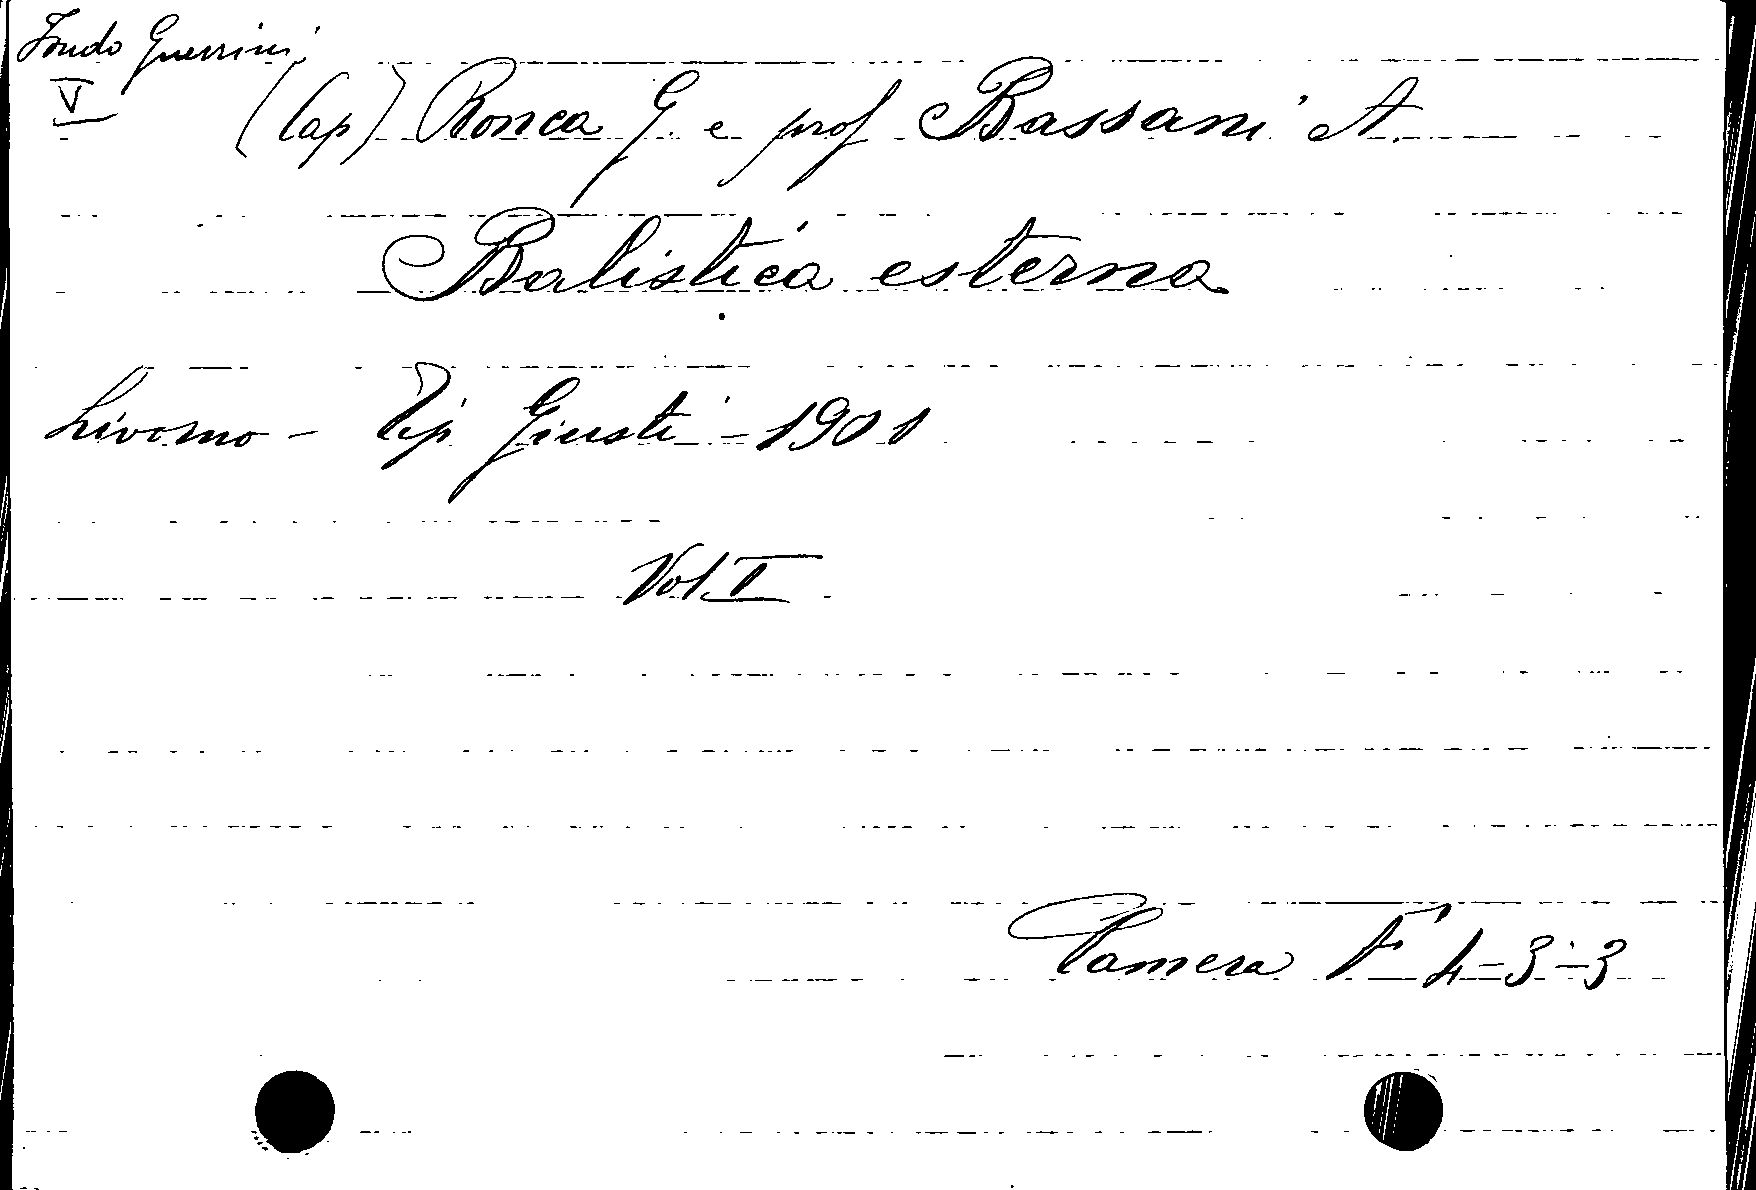 Fondo Guerrini
V
(Cap) Ronca G. e prof Bassani A.
Balistica esterna
Livorno - Tip Giusti - 1901
Vol I
Camera F 4-3-3